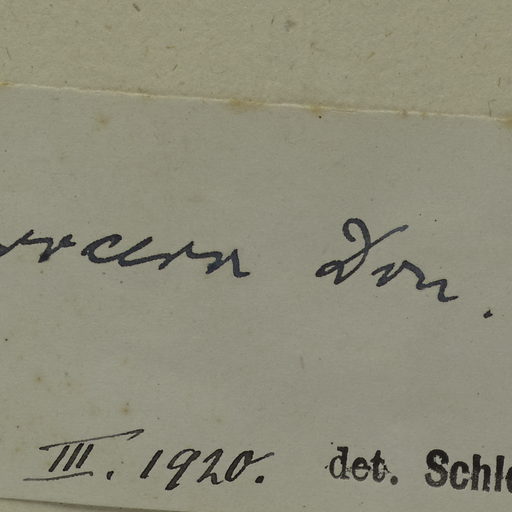 Don.
III. 1920. det. Schle